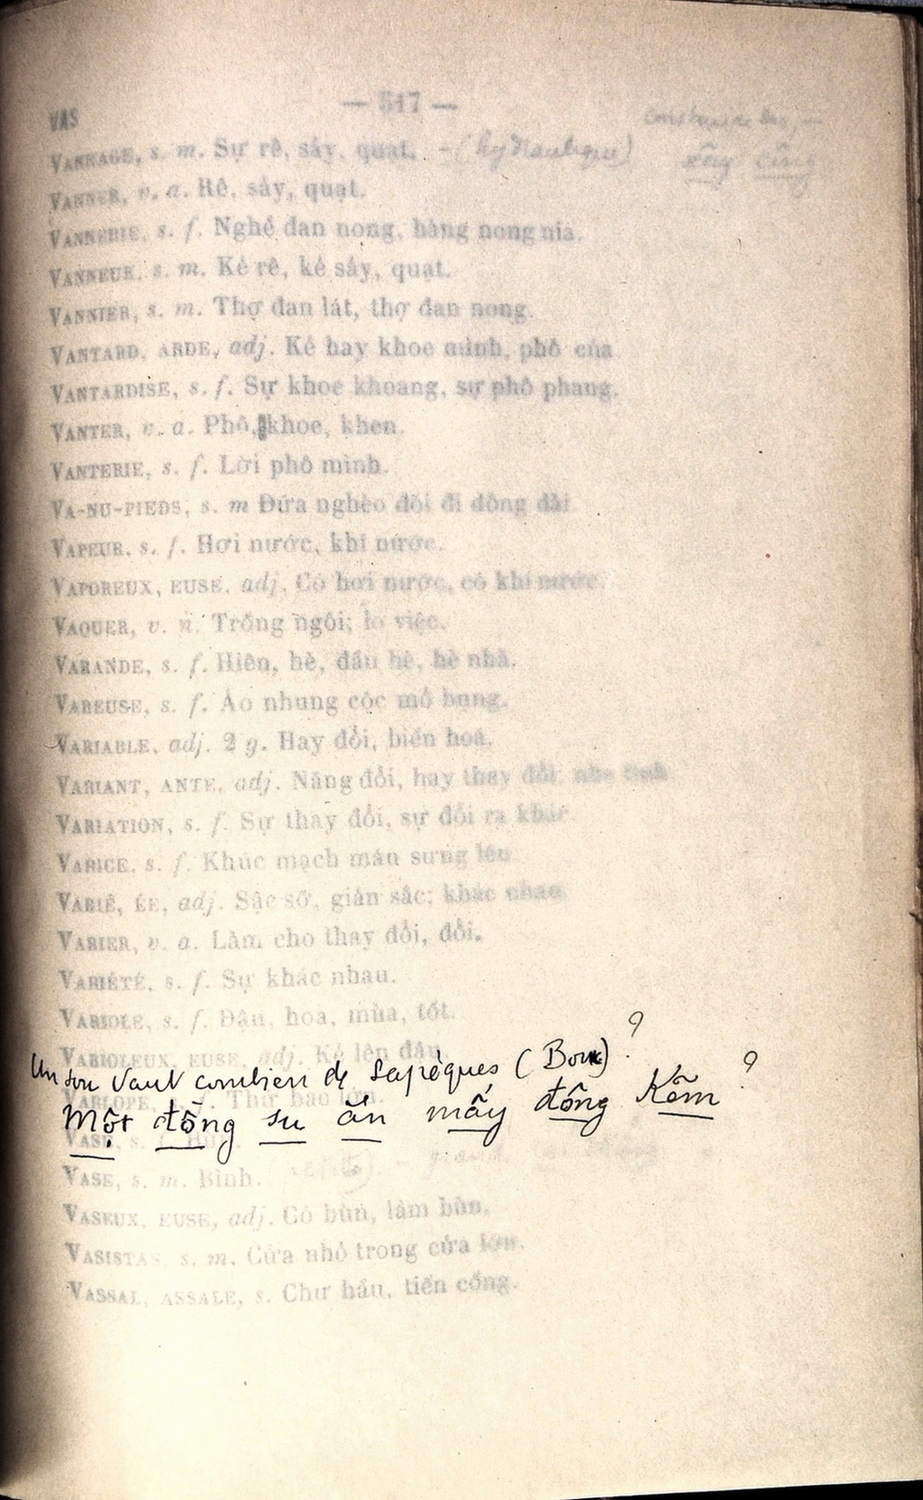 VAS — 517 —
VANNAGE, s. m. Sự rê, sảy, quạt. - (hydraulique) xây cống
VANNER, v. a. Rê, sảy, quạt.
VANNERIE, s. f. Nghề đan nong, hàng nong nia.
VANNEUR, s. m. Kẻ rê, kẻ sảy, quạt.
VANNIER, s. m. Thợ đan lát, thợ đan nong.
VANTARD, ARDE, adj. Kẻ hay khoe mình, phô của
VANTARDISE, s. f. Sự khoe khoang, sự phô phang.
VANTER, v. a. Phô, khoe, khen.
VANTERIE, s. f. Lời phô mình.
VA-NU-PIEDS, s. m Đứa nghèo đói đi đông dài
VAPEUR, s. f. Hơi nước, khí nước.
VAPOREUX, EUSE, adj. Có hơi nước, có khí nước.
VAQUER, v. n. Trống ngôi; lo việc.
VARANDE, s. f. Hiên, hè, đầu hè, hè nhà.
VAREUSE, s. f. Áo nhung cộc mổ bụng.
VARIABLE, adj. 2 g. Hay đổi, biến hoá.
VARIANT, ANTE, adj. Năng đổi, hay thay đổi, nhẹ tính
VARIATION, s. f. Sự thay đổi, sự đổi ra khác.
VARICE, s. f. Khúc mạch máu sưng lên
VARIÉ, ÉE, adj. Sặc sỡ, giản sắc; khác nhau
VARIER, v. a. Làm cho thay đổi, đổi.
VARIÉTÉ, s. f. Sự khác nhau.
VARIOLE, s. f. Đậu, hoa, mùa, tốt.
VARIOLEUX, EUSE, adj. Kẻ lên đậu
Un sou vaut combien de sapèques ( ) ?
VARLOPE, s. f. Thứ bào lớn.
Một đồng su ăn mấy đồng Kẽm ?
VASE, s. f. Bùn.
VASE, s. m. Bình.
VASEUX, EUSE, adj. Có bùn, lấm bùn.
VASISTAS, s. m. Cửa nhỏ trong cửa lớn.
VASSAL, ASSALE, s. Chư hầu, tiến cống.